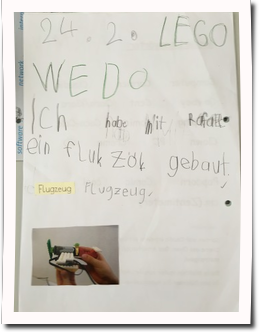 24.2. LEGO
WEDO
Ich habe mit Rafael
ein fluk zök gebaut.
Flugzeug Flugzeug.
software network